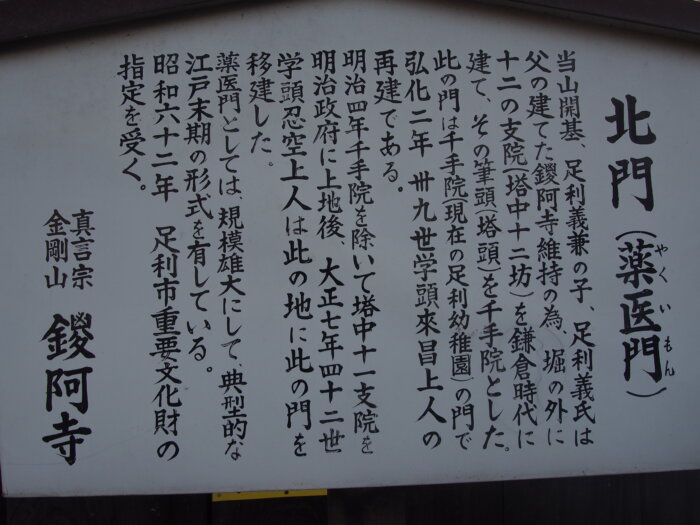 北門(薬医門)
やくいもん
当山開基、足利義兼の子、足利義氏は
父の建てた鑁阿寺維持の為、堀の外に
十二の支院(塔中十二坊)を鎌倉時代に
建て、その筆頭(塔頭)を千手院とした。
此の門は千手院(現在の足利幼稚園)の門で
弘化二年 卅九世学頭來昌上人の
再建である。
明治四年千手院を除いて塔中十一支院を
明治政府に上地後、大正七年四十二世
学頭忍空上人は此の地に此の門を
移建した。
薬医門としては、規模雄大にして、典型的な
江戸末期の形式を有している。
昭和六十二年 足利市重要文化財の
指定を受く。
真言宗
金剛山 鑁阿寺